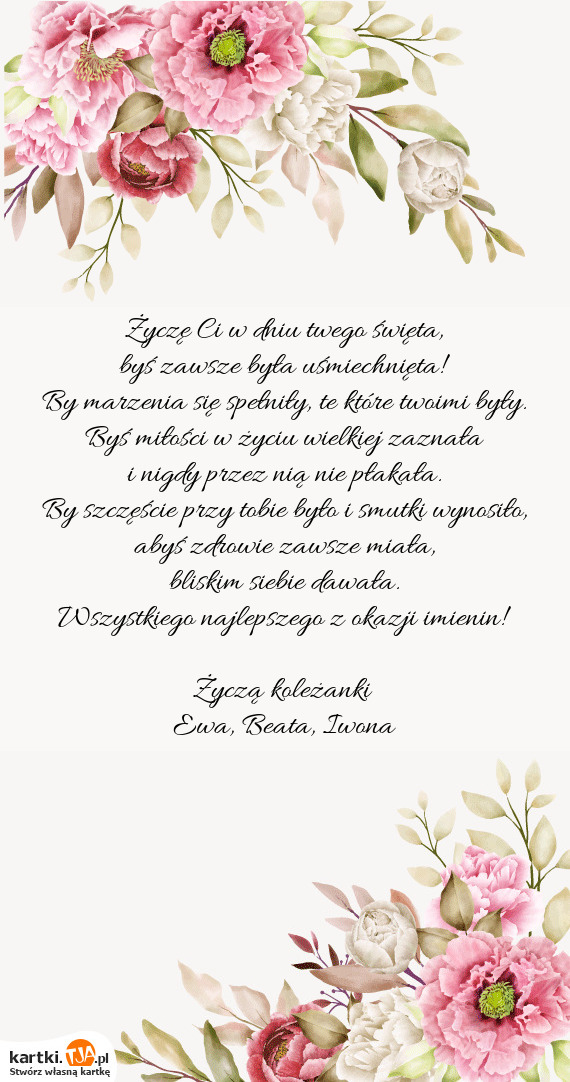 Życzę Ci w dniu twego święta,
byś zawsze była uśmiechnięta!
By marzenia się spełniły, te które twoimi były.
Byś miłości w życiu wielkiej zaznała
i nigdy przez nią nie płakała.
By szczęście przy tobie było i smutki wynosiło,
abyś zdrowie zawsze miała,
bliskim siebie dawała.
Wszystkiego najlepszego z okazji imienin!
Życzą koleżanki
Ewa, Beata, Iwona
kartki.TJA.pl
Stwórz własną kartkę